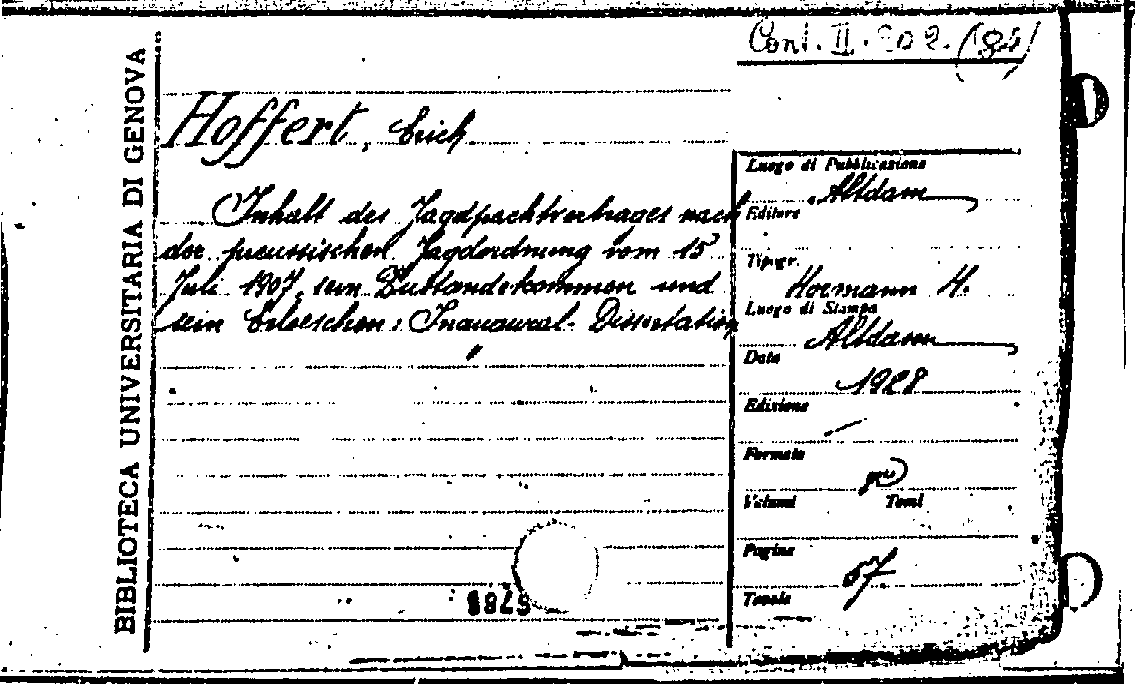 Cont. II. 202. (84)
BIBLIOTECA UNIVERSITARIA DI GENOVA
Hoffert, Erich
Inhalt des Jagdpachtvertrages nach
der preussischen Jagdordnung vom 15
Juli 1907, sein Zustandekommen und
sein Erloeschen: Inaugural-Dissertation
Luogo di Pubblicazione
Altdam
Editore
Tipogr.
Hormann H.
Luogo di Stampa
Altdam
Data
1928
Edizione
Formato
8°
Volumi Tomi
Pagine
57
Tavole